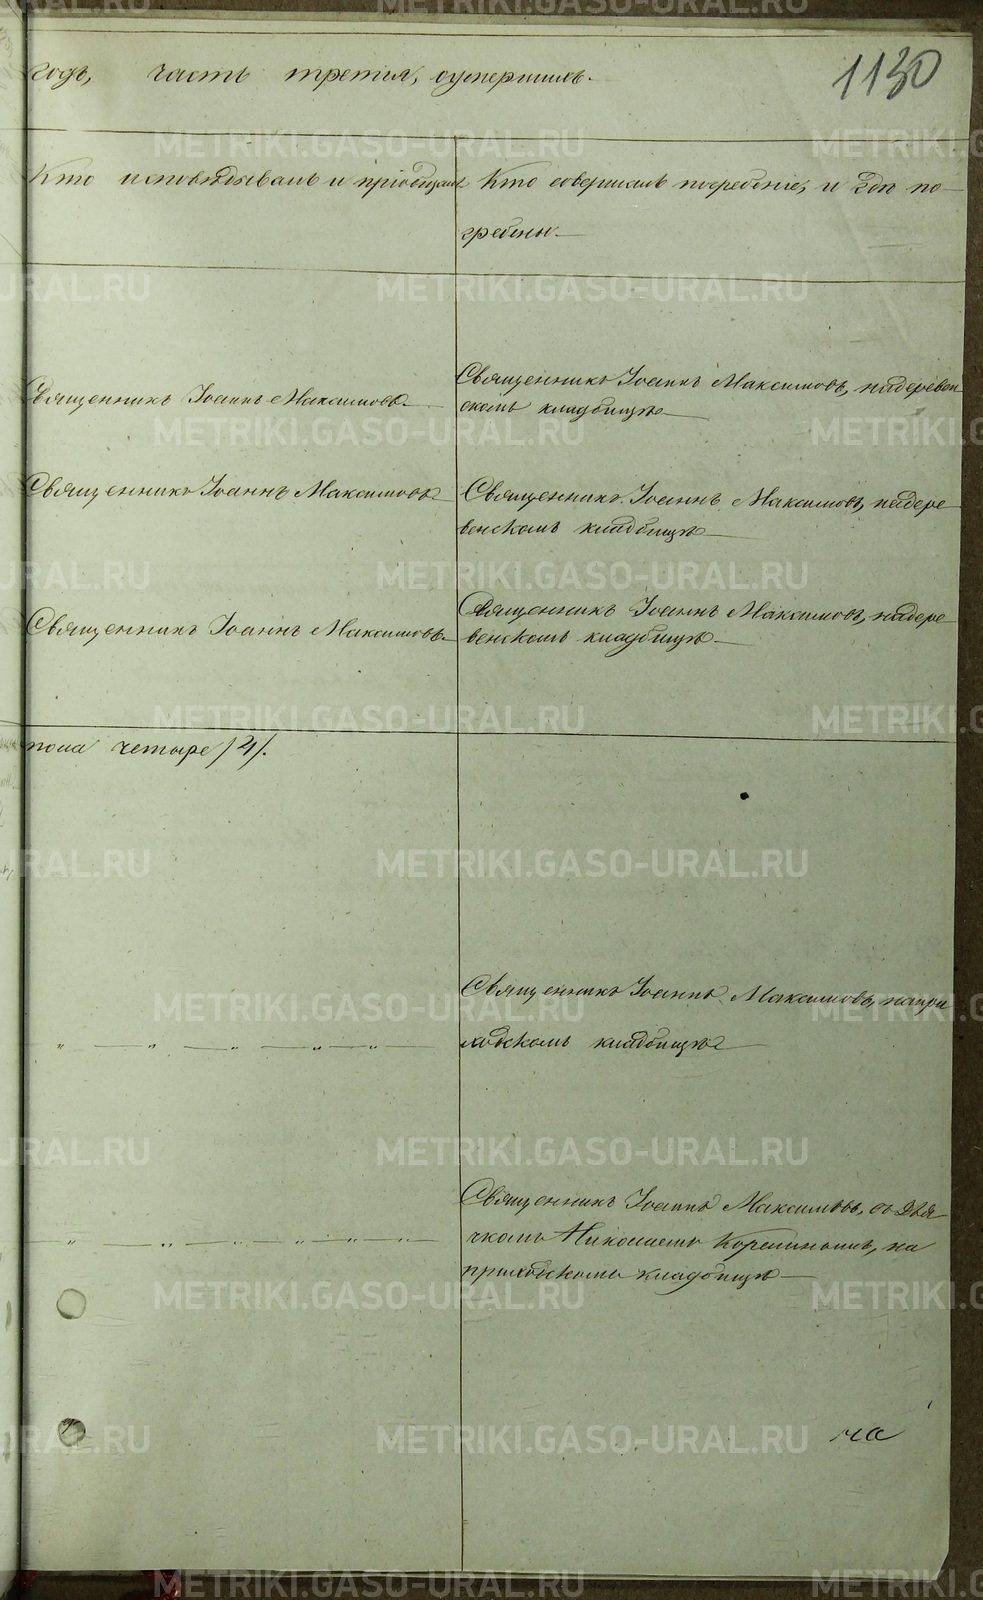 годъ, часть третія, о умершихъ.
1130
Кто исповѣдывалъ и пріобщалъ
Кто совершалъ погребеніе, и гдѣ по-
гребены.
Священникъ Іоаннъ Максимовъ.
Священникъ Іоаннъ Максимовъ, на деревен
скомъ кладбищѣ
Священникъ Іоаннъ Максимовъ.
Священникъ Іоаннъ Максимовъ, на дере
венскомъ кладбищѣ
Священникъ Іоаннъ Максимовъ.
Священникъ Іоаннъ Максимовъ, на дере
венскомъ кладбищѣ.
пола четыре /4/.
Священникъ Іоаннъ Максимовъ, на при
ходскомъ кладбищѣ
Священникъ Іоаннъ Максимовъ, съ Дья
чкомъ Николаемъ на
приходскомъ кладбищѣ
на
METRIKI.GASO-URAL.RU